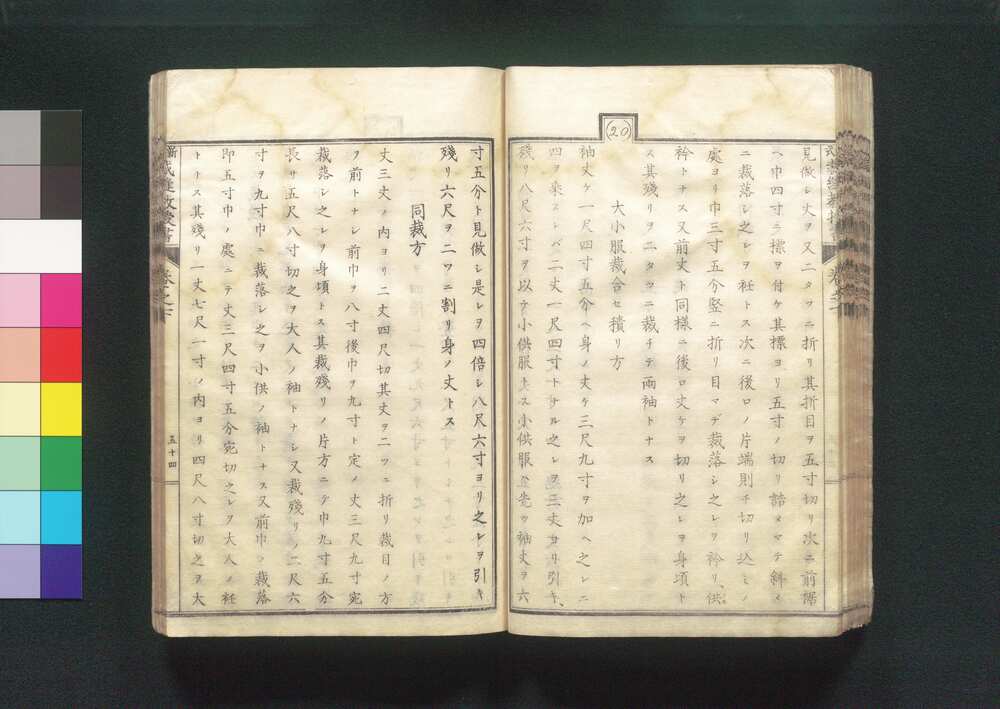 (20)
見做シ丈ヲ又二タツニ折リ其折目ヲ五寸切リ次ニ前幅
ヘ巾四寸ニ標ヲ付ケ其標ヨリ五寸ノ切リ詰メマデ斜メ
ニ裁落シ之レヲ衽トス次ニ後ロノ片端則チ切リ込ミノ
處ヨリ巾三寸五分竪ニ折リ目マデ裁落シ之レヲ衿リ供
衿トナス又前丈ト同様ニ後ロ丈ケヲ切リ之レヲ身頃ト
ス其殘リヲ二タツニ裁チテ両袖トナス
大小服裁合セ積リ方
袖丈ケ一尺四寸五分ヘ身ノ丈ケ三尺九寸ヲ加ヘ之レニ
四ヲ乗スレバ二丈一尺四寸トナル之レヲ三丈ヨリ引キ
殘リ八尺六寸ヲ以テ小供服トス小供服ハ先ツ袖丈ヲ六
寸五分ト見做シ是レヲ四倍シ八尺六寸ヨリ之レヲ引キ
殘リ六尺ヲ二ツニ割リ身ノ丈トス
同裁方
丈三丈ノ内ヨリ二丈四尺切其丈ヲ二ツニ折リ裁目ノ方
ヲ前トナシ前巾ヲ八寸後巾ヲ九寸ト定メ丈三尺九寸宛
裁落シ之レヲ身頃トス其裁殘リノ片方ニテ巾九寸五分
長サ五尺八寸切之ヲ大人ノ袖トナシ又裁殘リノ二尺六
寸ヲ九寸巾ニ裁落シ之ヲ小供ノ袖トナス又前巾ノ裁落
即五寸巾ノ處ニテ丈三尺四寸五分宛切之レヲ大人ノ衽
トス其殘リ一丈七尺一寸ノ内ヨリ四尺八寸切之ヲ大
五十四